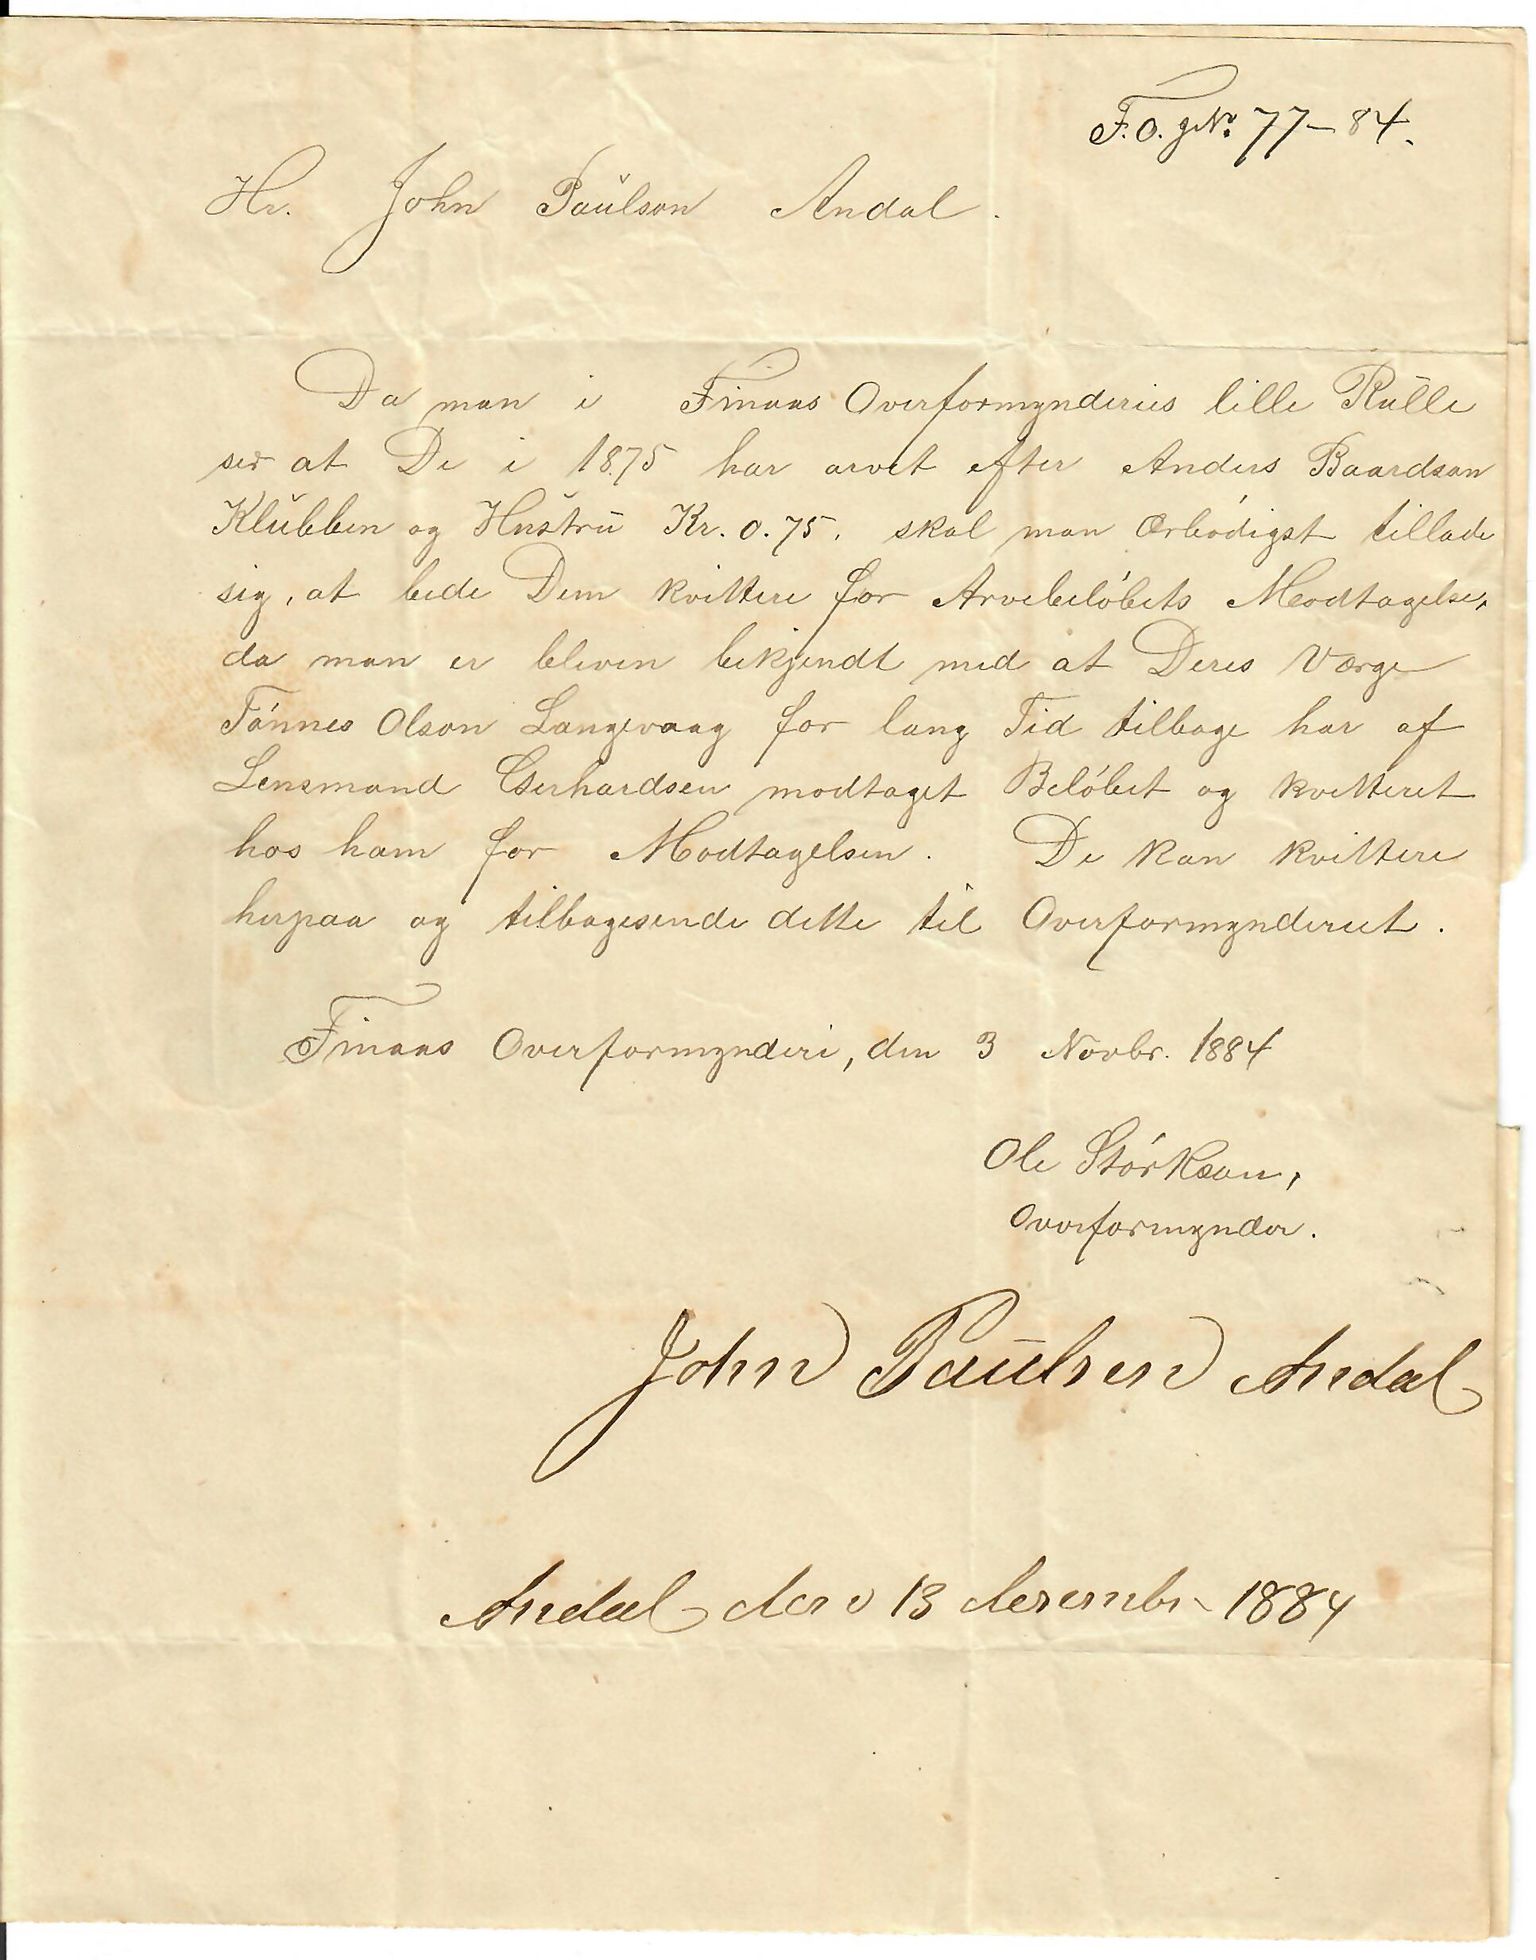 F.O. gNo. 77-84.
Hr. John Paulson Andal.
Da man i Finaas Overformynderies lille Rulle
ser at De i 1875 har arvet efter Anders Baardson
Klubben og Hustru Kr. 0.75. skal man Ærbödigst tillade
sig, at bede Dem kvittere for Arvebelöbets Modtagelse,
da man er bleven bekjendt med at Deres Værge
Tönnes Olson Langevaag for lang Tid tilbage har af
Lensmand Gerhardsen modtaget Belöbet og kvitteret
hos ham for Modtagelsen. De kan kvittere
herpaa og tilbagesende dette til Overformynderiet.
Finaas Overformynderi, den 3 Novbr. 1884
Ole Störkson,
Overformynder.
John Paulsen Andal
Andal den 13 desembr 1884